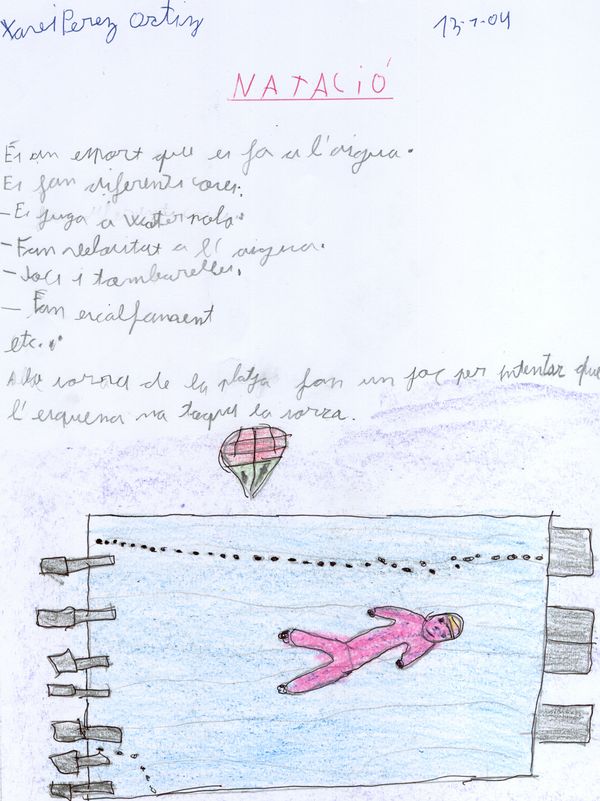 Xavi Perez Ortiz 13-1-04
NATACIÓ
És un esport que es fa a l'aigua.
Es fan diferents coses:
- Es juga a waterpolo.
- Fan velocitat a l'aigua.
- Jocs i tombarelles.
- Fan escalfament
etc...
A la sorra de la platja fan un joc per intentar que
l'esquena no toqui la sorra.